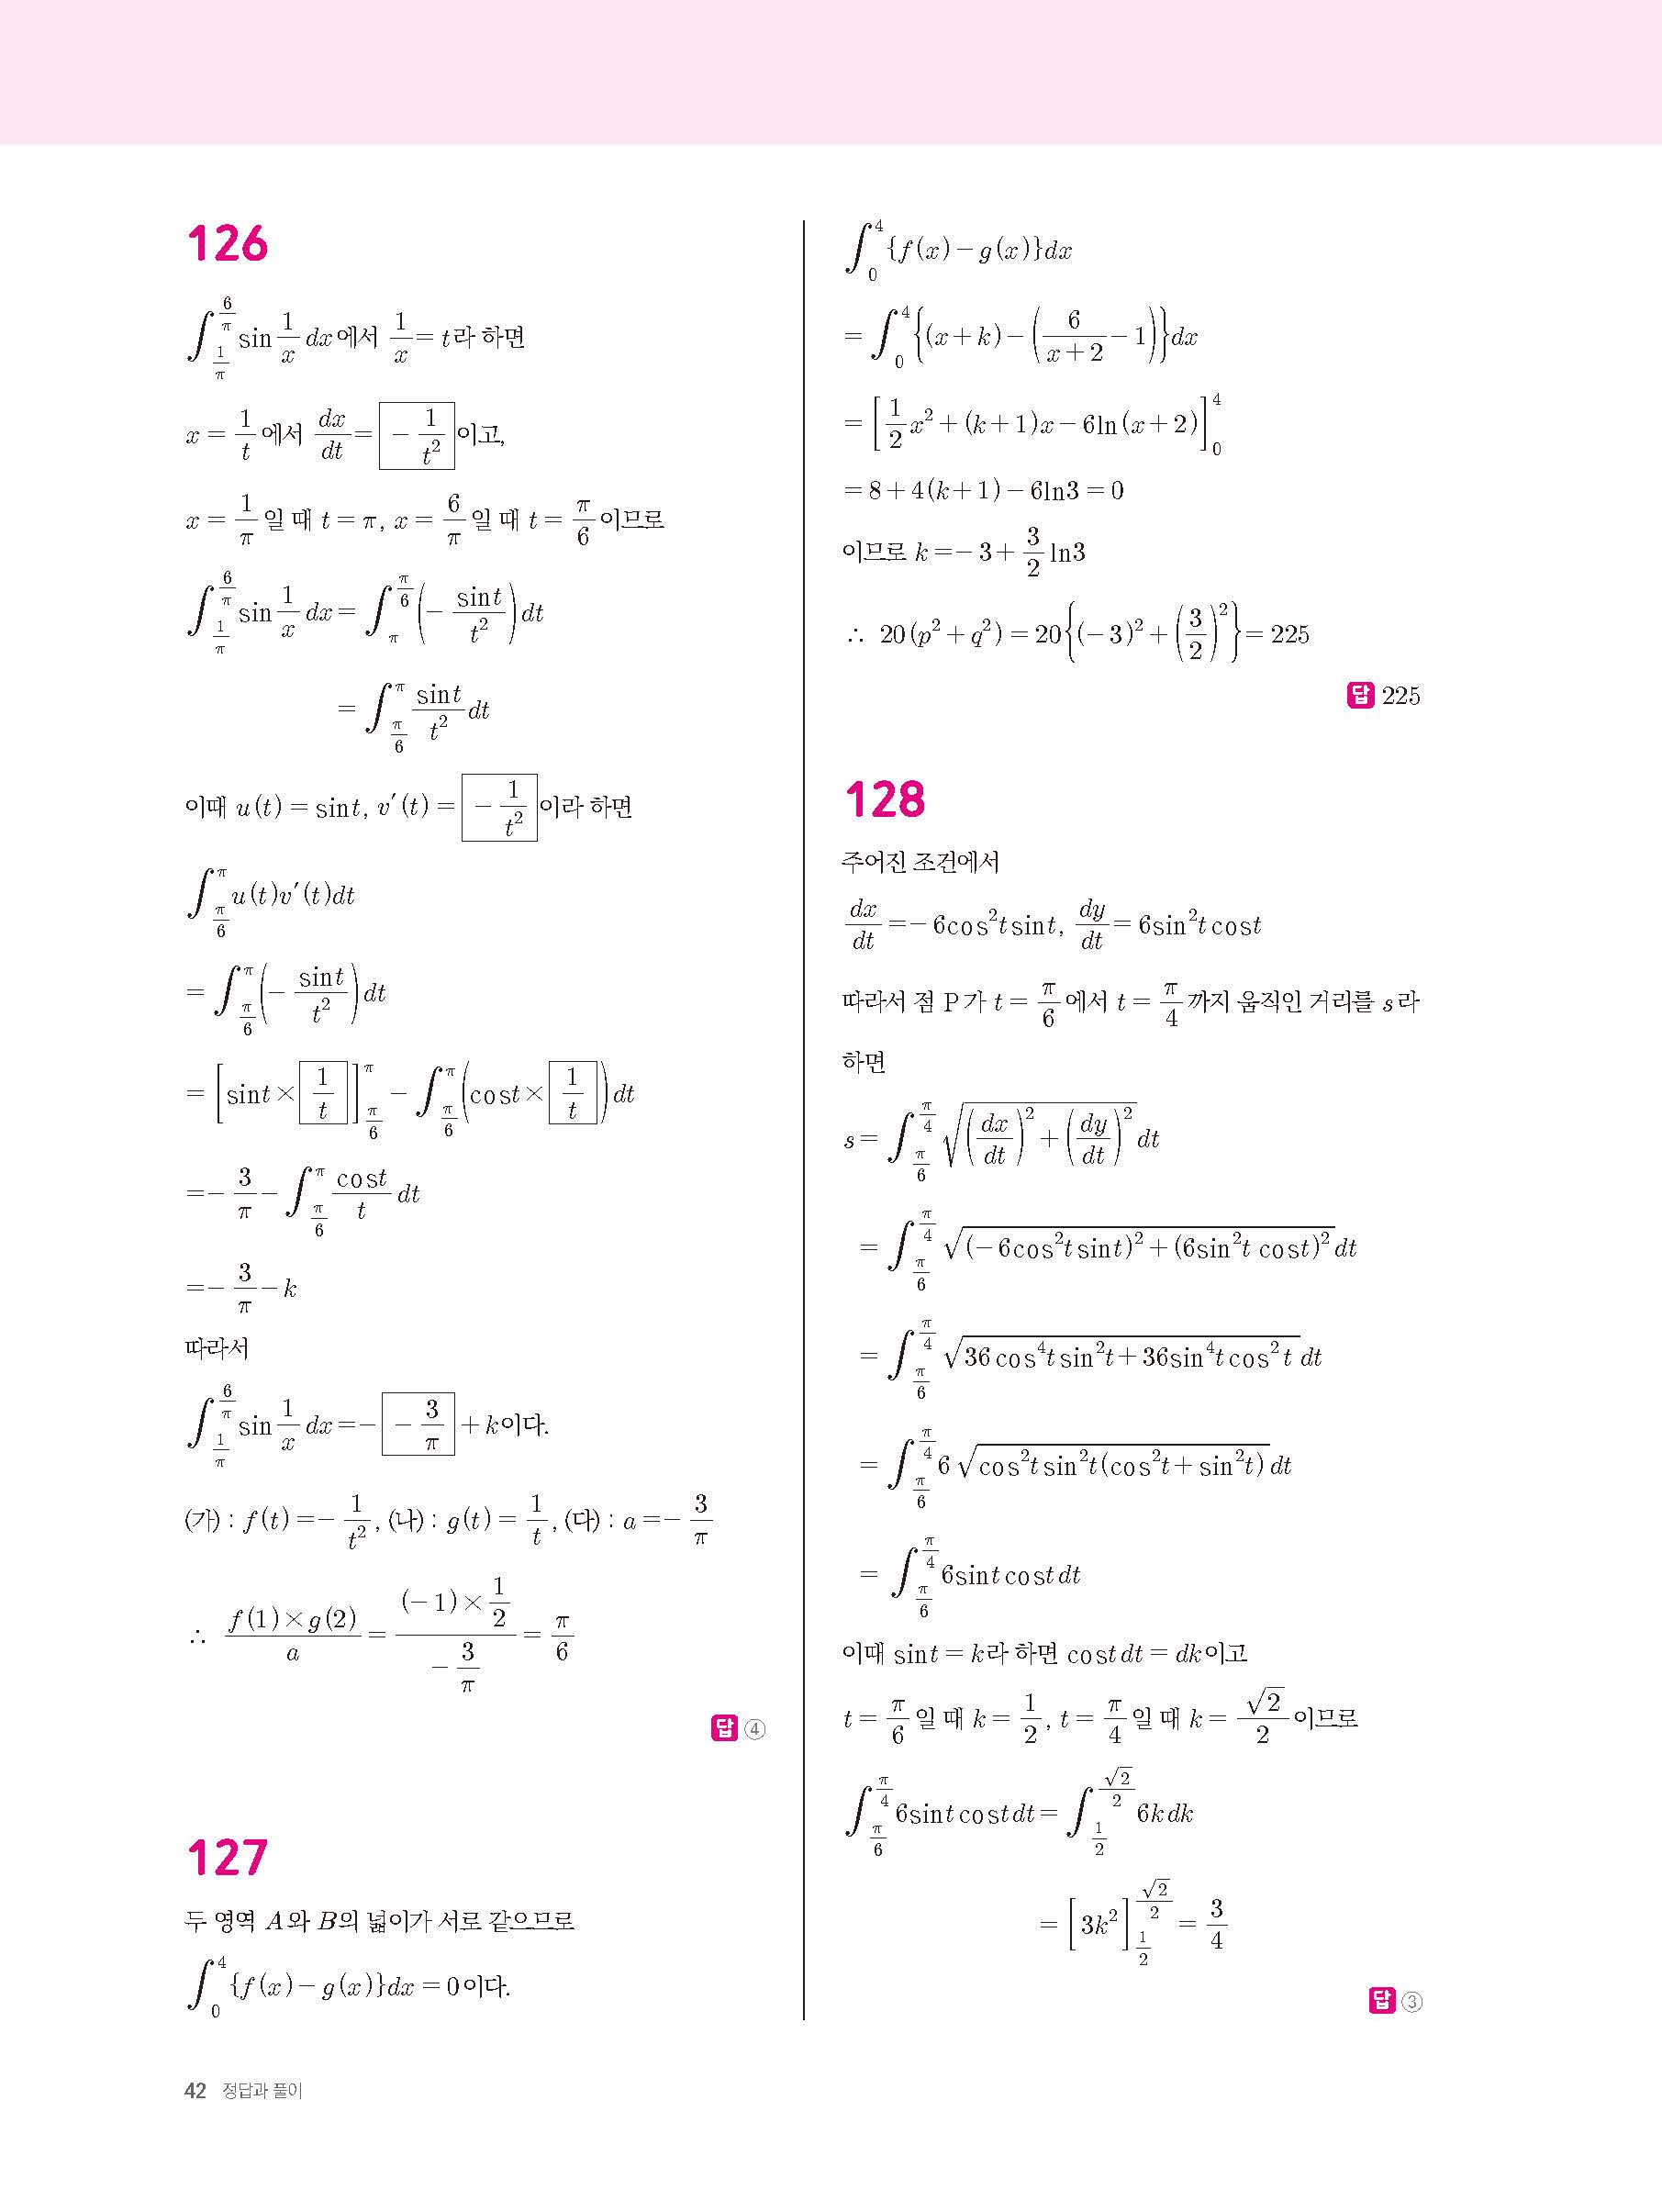 126
$\int_{\frac{1}{\pi}}^{\frac{6}{\pi}} \sin\frac{1}{x}dx$에서 $\frac{1}{x}=t$라 하면
$x=\frac{1}{t}$에서 $\frac{dx}{dt}=\boxed{-\frac{1}{t^2}}$이고,
$x=\frac{1}{\pi}$일 때 $t=\pi$, $x=\frac{6}{\pi}$일 때 $t=\frac{\pi}{6}$이므로
$\int_{\frac{1}{\pi}}^{\frac{6}{\pi}} \sin\frac{1}{x}dx=\int_{\pi}^{\frac{\pi}{6}}\left(-\frac{\sin t}{t^2}\right)dt$
$=\int_{\frac{\pi}{6}}^{\pi}\frac{\sin t}{t^2}dt$
이때 $u(t)=\sin t$, $v'(t)=\boxed{-\frac{1}{t^2}}$이라 하면
$\int_{\frac{\pi}{6}}^{\pi}u(t)v'(t)dt$
$=\int_{\frac{\pi}{6}}^{\pi}\left(-\frac{\sin t}{t^2}\right)dt$
$=\left[\sin t\times\boxed{\frac{1}{t}}\right]_{\frac{\pi}{6}}^{\pi}-\int_{\frac{\pi}{6}}^{\pi}\left(\cos t\times\boxed{\frac{1}{t}}\right)dt$
$=-\frac{3}{\pi}-\int_{\frac{\pi}{6}}^{\pi}\frac{\cos t}{t}dt$
$=-\frac{3}{\pi}-k$
따라서
$\int_{\frac{1}{\pi}}^{\frac{6}{\pi}} \sin\frac{1}{x}dx=-\boxed{-\frac{3}{\pi}}+k$이다.
(가) : $f(t)=-\frac{1}{t^2}$, (나) : $g(t)=\frac{1}{t}$, (다) : $a=-\frac{3}{\pi}$
$\therefore \frac{f(1)\times g(2)}{a}=\frac{(-1)\times\frac{1}{2}}{-\frac{3}{\pi}}=\frac{\pi}{6}$
답 ④
127
두 영역 $A$와 $B$의 넓이가 서로 같으므로
$\int_{0}^{4}\{f(x)-g(x)\}dx=0$이다.
$\int_{0}^{4}\{f(x)-g(x)\}dx$
$=\int_{0}^{4}\left\{(x+k)-\left(\frac{6}{x+2}-1\right)\right\}dx$
$=\left[\frac{1}{2}x^2+(k+1)x-6\ln(x+2)\right]_{0}^{4}$
$=8+4(k+1)-6\ln3=0$
이므로 $k=-3+\frac{3}{2}\ln3$
$\therefore 20(p^2+q^2)=20\left\{(-3)^2+\left(\frac{3}{2}\right)^2\right\}=225$
답 225
128
주어진 조건에서
$\frac{dx}{dt}=-6\cos^2t\sin t$, $\frac{dy}{dt}=6\sin^2t\cos t$
따라서 점 P가 $t=\frac{\pi}{6}$에서 $t=\frac{\pi}{4}$까지 움직인 거리를 $s$라
하면
$s=\int_{\frac{\pi}{6}}^{\frac{\pi}{4}}\sqrt{\left(\frac{dx}{dt}\right)^2+\left(\frac{dy}{dt}\right)^2}dt$
$=\int_{\frac{\pi}{6}}^{\frac{\pi}{4}}\sqrt{(-6\cos^2t\sin t)^2+(6\sin^2t\cos t)^2}dt$
$=\int_{\frac{\pi}{6}}^{\frac{\pi}{4}}\sqrt{36\cos^4t\sin^2t+36\sin^4t\cos^2t}\,dt$
$=\int_{\frac{\pi}{6}}^{\frac{\pi}{4}}6\sqrt{\cos^2t\sin^2t(\cos^2t+\sin^2t)}dt$
$=\int_{\frac{\pi}{6}}^{\frac{\pi}{4}}6\sin t\cos t\,dt$
이때 $\sin t=k$라 하면 $\cos t\,dt=dk$이고
$t=\frac{\pi}{6}$일 때 $k=\frac{1}{2}$, $t=\frac{\pi}{4}$일 때 $k=\frac{\sqrt{2}}{2}$이므로
$\int_{\frac{\pi}{6}}^{\frac{\pi}{4}}6\sin t\cos t\,dt=\int_{\frac{1}{2}}^{\frac{\sqrt{2}}{2}}6k\,dk$
$=\left[3k^2\right]_{\frac{1}{2}}^{\frac{\sqrt{2}}{2}}=\frac{3}{4}$
답 ③
42 정답과 풀이